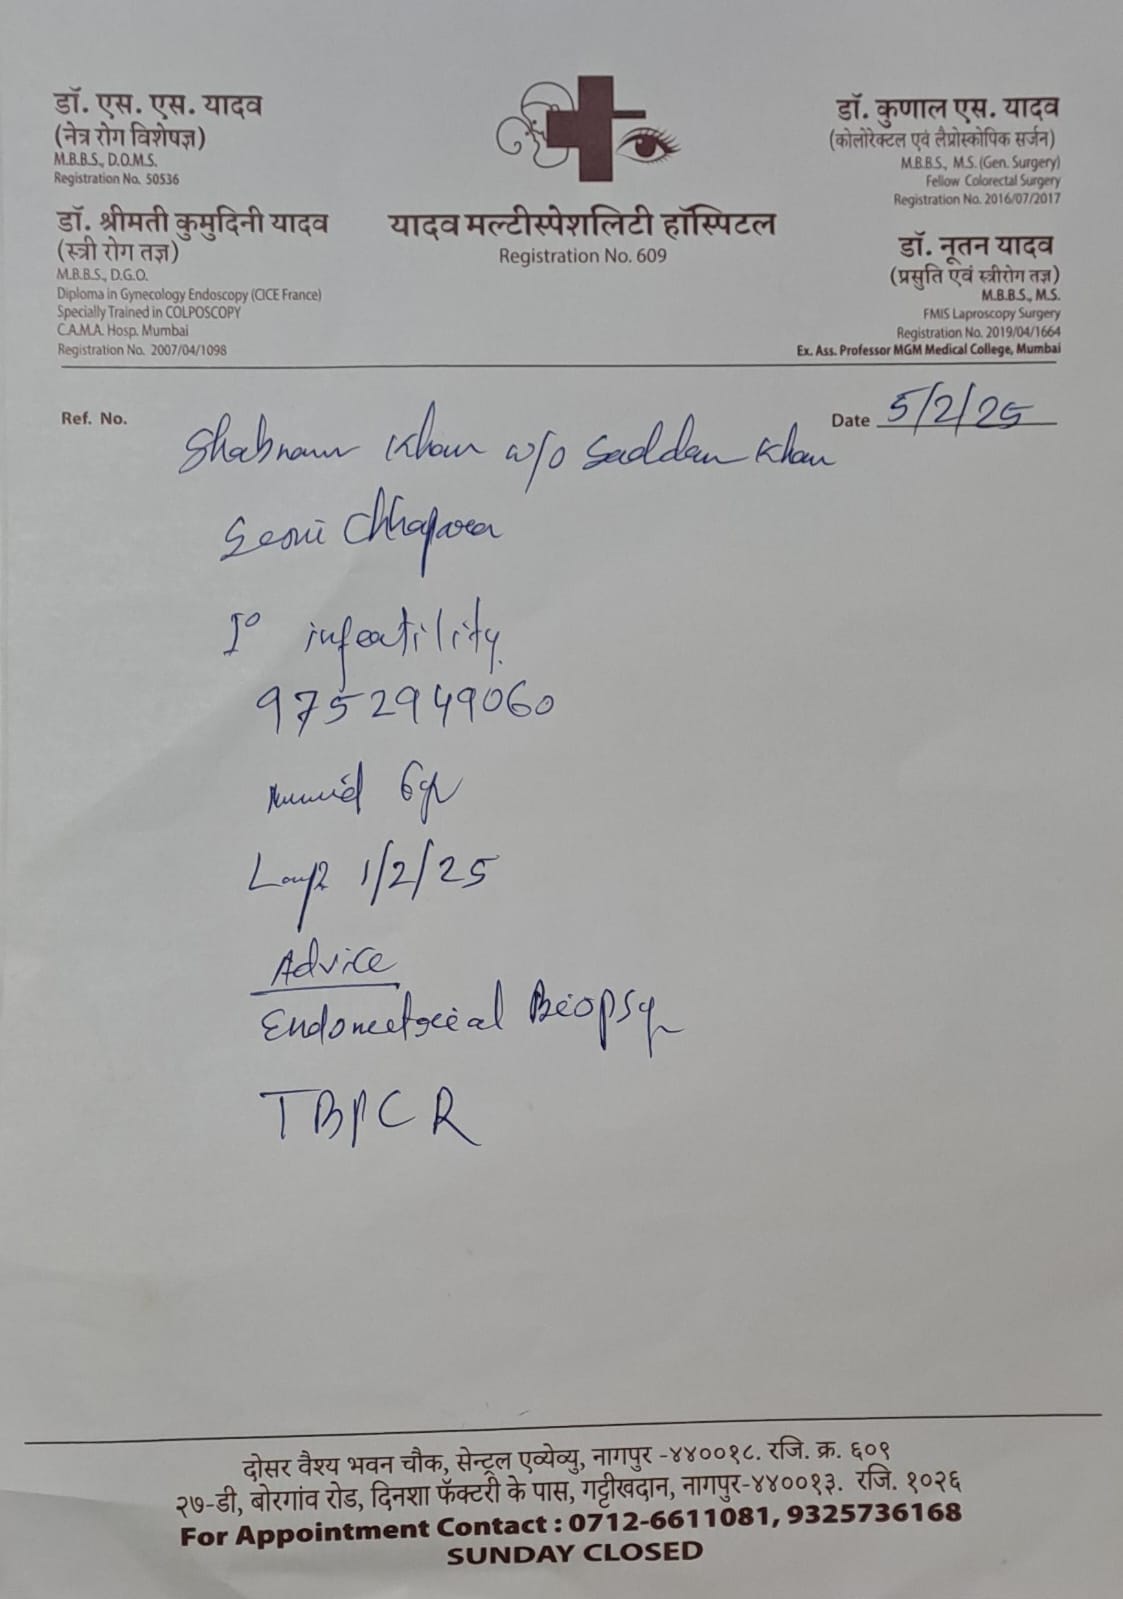 डॉ. एस. एस. यादव
(नेत्र रोग विशेषज्ञ)
M.B.B.S., D.O.M.S.
Registration No. 50536
डॉ. श्रीमती कुमुदिनी यादव
(स्त्री रोग तज्ञ)
M.B.B.S., D.G.O.
Diploma in Gynecology Endoscopy (CICE France)
Specially Trained in COLPOSCOPY
C.A.M.A. Hosp. Mumbai
Registration No. 2007/04/1098
यादव मल्टीस्पेशलिटी हॉस्पिटल
Registration No. 609
डॉ. कुणाल एस. यादव
(कोलोरेक्टल एवं लैप्रोस्कोपिक सर्जन)
M.B.B.S., M.S. (Gen. Surgery)
Fellow Colorectal Surgery
Registration No. 2016/07/2017
डॉ. नूतन यादव
(प्रसुति एवं स्त्रीरोग तज्ञ)
M.B.B.S., M.S.
FMIS Laproscopy Surgery
Registration No. 2019/04/1664
Ex. Ass. Professor MGM Medical College, Mumbai
Ref. No.
Date 5/2/25
Shabnam Khan w/o Saddam Khan
Seoni Chhapara
I° infertility
9752949060
6yr
1/2/25
Advice
Endometrial Biopsy
TBPCR
दोसर वैश्य भवन चौक, सेन्ट्रल एव्येव्यु, नागपुर -४४००१८. रजि. क्र. ६०९
२७-डी, बोरगांव रोड, दिनशा फॅक्टरी के पास, गट्टीखदान, नागपुर-४४००१३. रजि. १०२६
For Appointment Contact : 0712-6611081, 9325736168
SUNDAY CLOSED